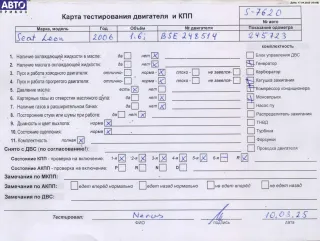 АВТО
Карта тестирования двигателя и КПП
5-7620
№ авто
Марка, модель
Год
Объём
№ двигателя
Показания одометра
Seat Leon
2006
1.6
BSE 248514
245723
КОМПЛЕКТНОСТЬ:
1. Наличие охлаждающей жидкости в масле: да нет
2. Наличие масла в охлаждающей жидкости: да нет
3. Пуск и работа холодного двигателя: норма плохо не заводится
4. Пуск и работа прогретого двигателя: норма плохо не заводится
5. Давление масла: есть нет
6. Картерные газы со стороны масляного щупа: есть нет
7. Наличие газов в расширительном бачке: есть нет
8. Посторонние стуки или шумы при работе: да нет
9. Дымность и цвет выхлопа: норма
10. Состояние сцепления: норма
11. Комплектность: полный
Блок управления ДВС
Генератор
Карбюратор
Катушка зажигания
Компрессор кондиционера
Моновпрыск
Насос ГУ
Распределитель зажигания
ТНВД
Турбина
Форсунки
Проводка двигателя
Снято с ДВС (по согласованию):
Состояние КПП - проверка на включение: 1-я 2-я 3-я 4-я 5-я 6-я R
Состояние АКПП - проверка на включение: P R N D
Замечания по МКПП:
Замечания по АКПП: не едет вперёд едет вперёд нормально не едет назад едет назад нормально
Замечания по ДВС:
Тестировал:
ФИО
подпись
10.03.25
Дата